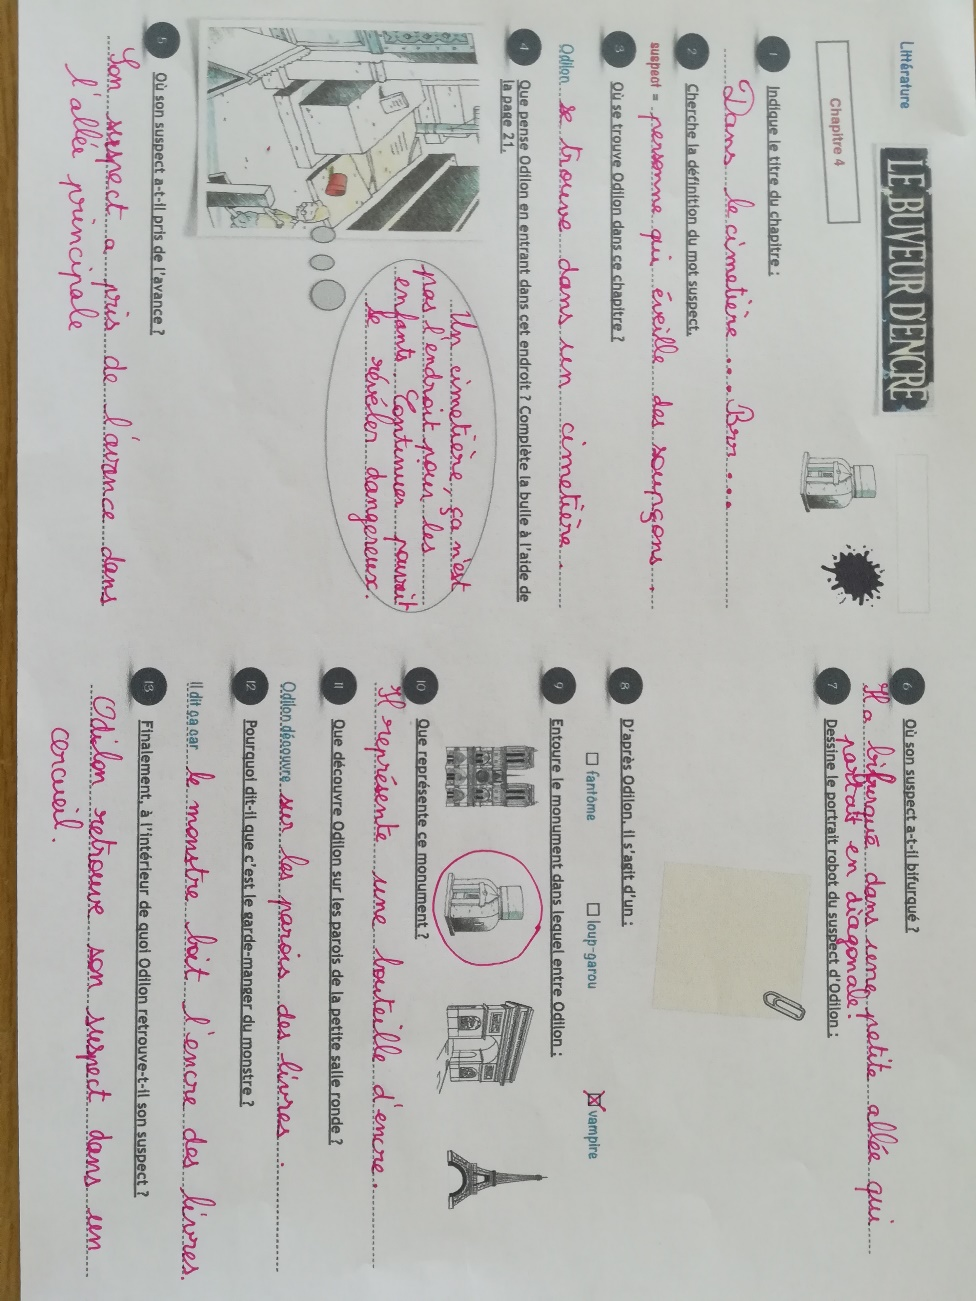 Littérature
LE BUVEUR D'ENCRE
Chapitre 4
1 Indique le titre du chapitre :
Dans le cimetière .... Brr ....
2 Cherche la définition du mot suspect.
suspect = personne qui éveille des soupçons.
3 Où se trouve Odilon dans ce chapitre ?
Odilon se trouve dans un cimetière.
4 Que pense Odilon en entrant dans cet endroit ? Complète la bulle à l'aide de
la page 21.
Un cimetière, ça n'est
pas l'endroit pour les
enfants. Continuer pouvait
se révéler dangereux.
5 Où son suspect a-t-il pris de l'avance ?
Son suspect a pris de l'avance dans
l'allée principale
6 Où son suspect a-t-il bifurqué ?
Il a bifurqué dans une petite allée qui
partait en diagonale.
7 Dessine le portrait robot du suspect d'Odilon :
8 D'après Odilon, il s'agit d'un :
fantôme loup-garou vampire
9 Entoure le monument dans lequel entre Odilon :
10 Que représente ce monument ?
Il représente une bouteille d'encre.
11 Que découvre Odilon sur les parois de la petite salle ronde ?
Odilon découvre sur les parois des livres.
12 Pourquoi dit-il que c'est le garde-manger du monstre ?
Il dit ça car le monstre boit l'encre des livres.
13 Finalement, à l'intérieur de quoi Odilon retrouve-t-il son suspect ?
Odilon retrouve son suspect dans un
cercueil.